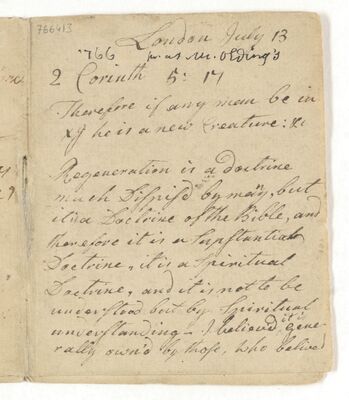 766413
London July 13
1766 p.m. at Mr. Olding's
2 Corinth 5: 17
Therefore if any man be in
X he is a new Creature: &c
Regeneration is a doctrine
much Dispis'd by many, but
it is a Doctrine of the Bible, and
therefore it is a Supstantial
Doctrine, it is a Spiritual
Doctrine, and it is not to be
understood but by Spiritual
understanding - I believed it is gene
rally own'd by those, who believed